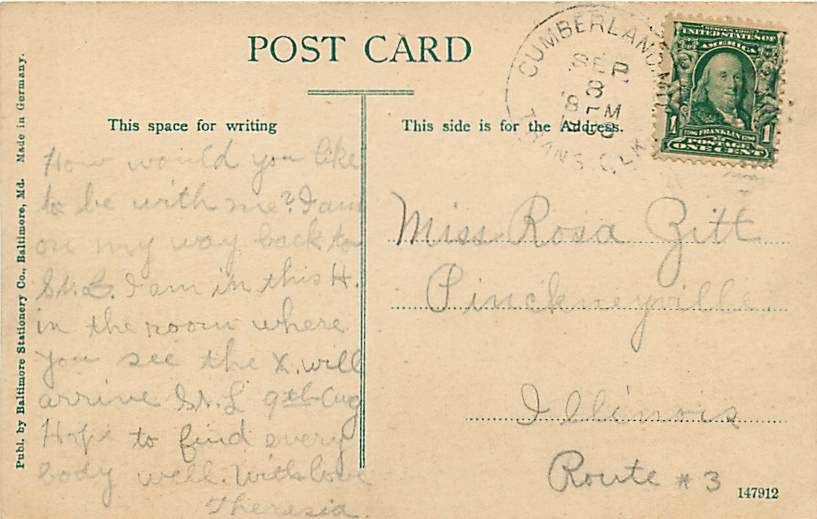 POST CARD
This space for writing
This side is for the Address.
CUMBERLAND, M
SEP
8
8 PM
TRANS. CLK
UNITED STATES OF
AMERICA
1790 FRANKLIN 1790
POSTAGE
1 ONE CENT 1
How would you like
to be with me? I am
on my way back to
St. L. I am in this H.
in the room where
you see the X. will
arrive St. L 9th Aug
Hope to find every
body well. With love
Theresia.
Miss Rosa Zitt
Pinckneyville
Illinois
Route # 3
147912
Publ. by Baltimore Stationery Co., Baltimore, Md. Made in Germany.